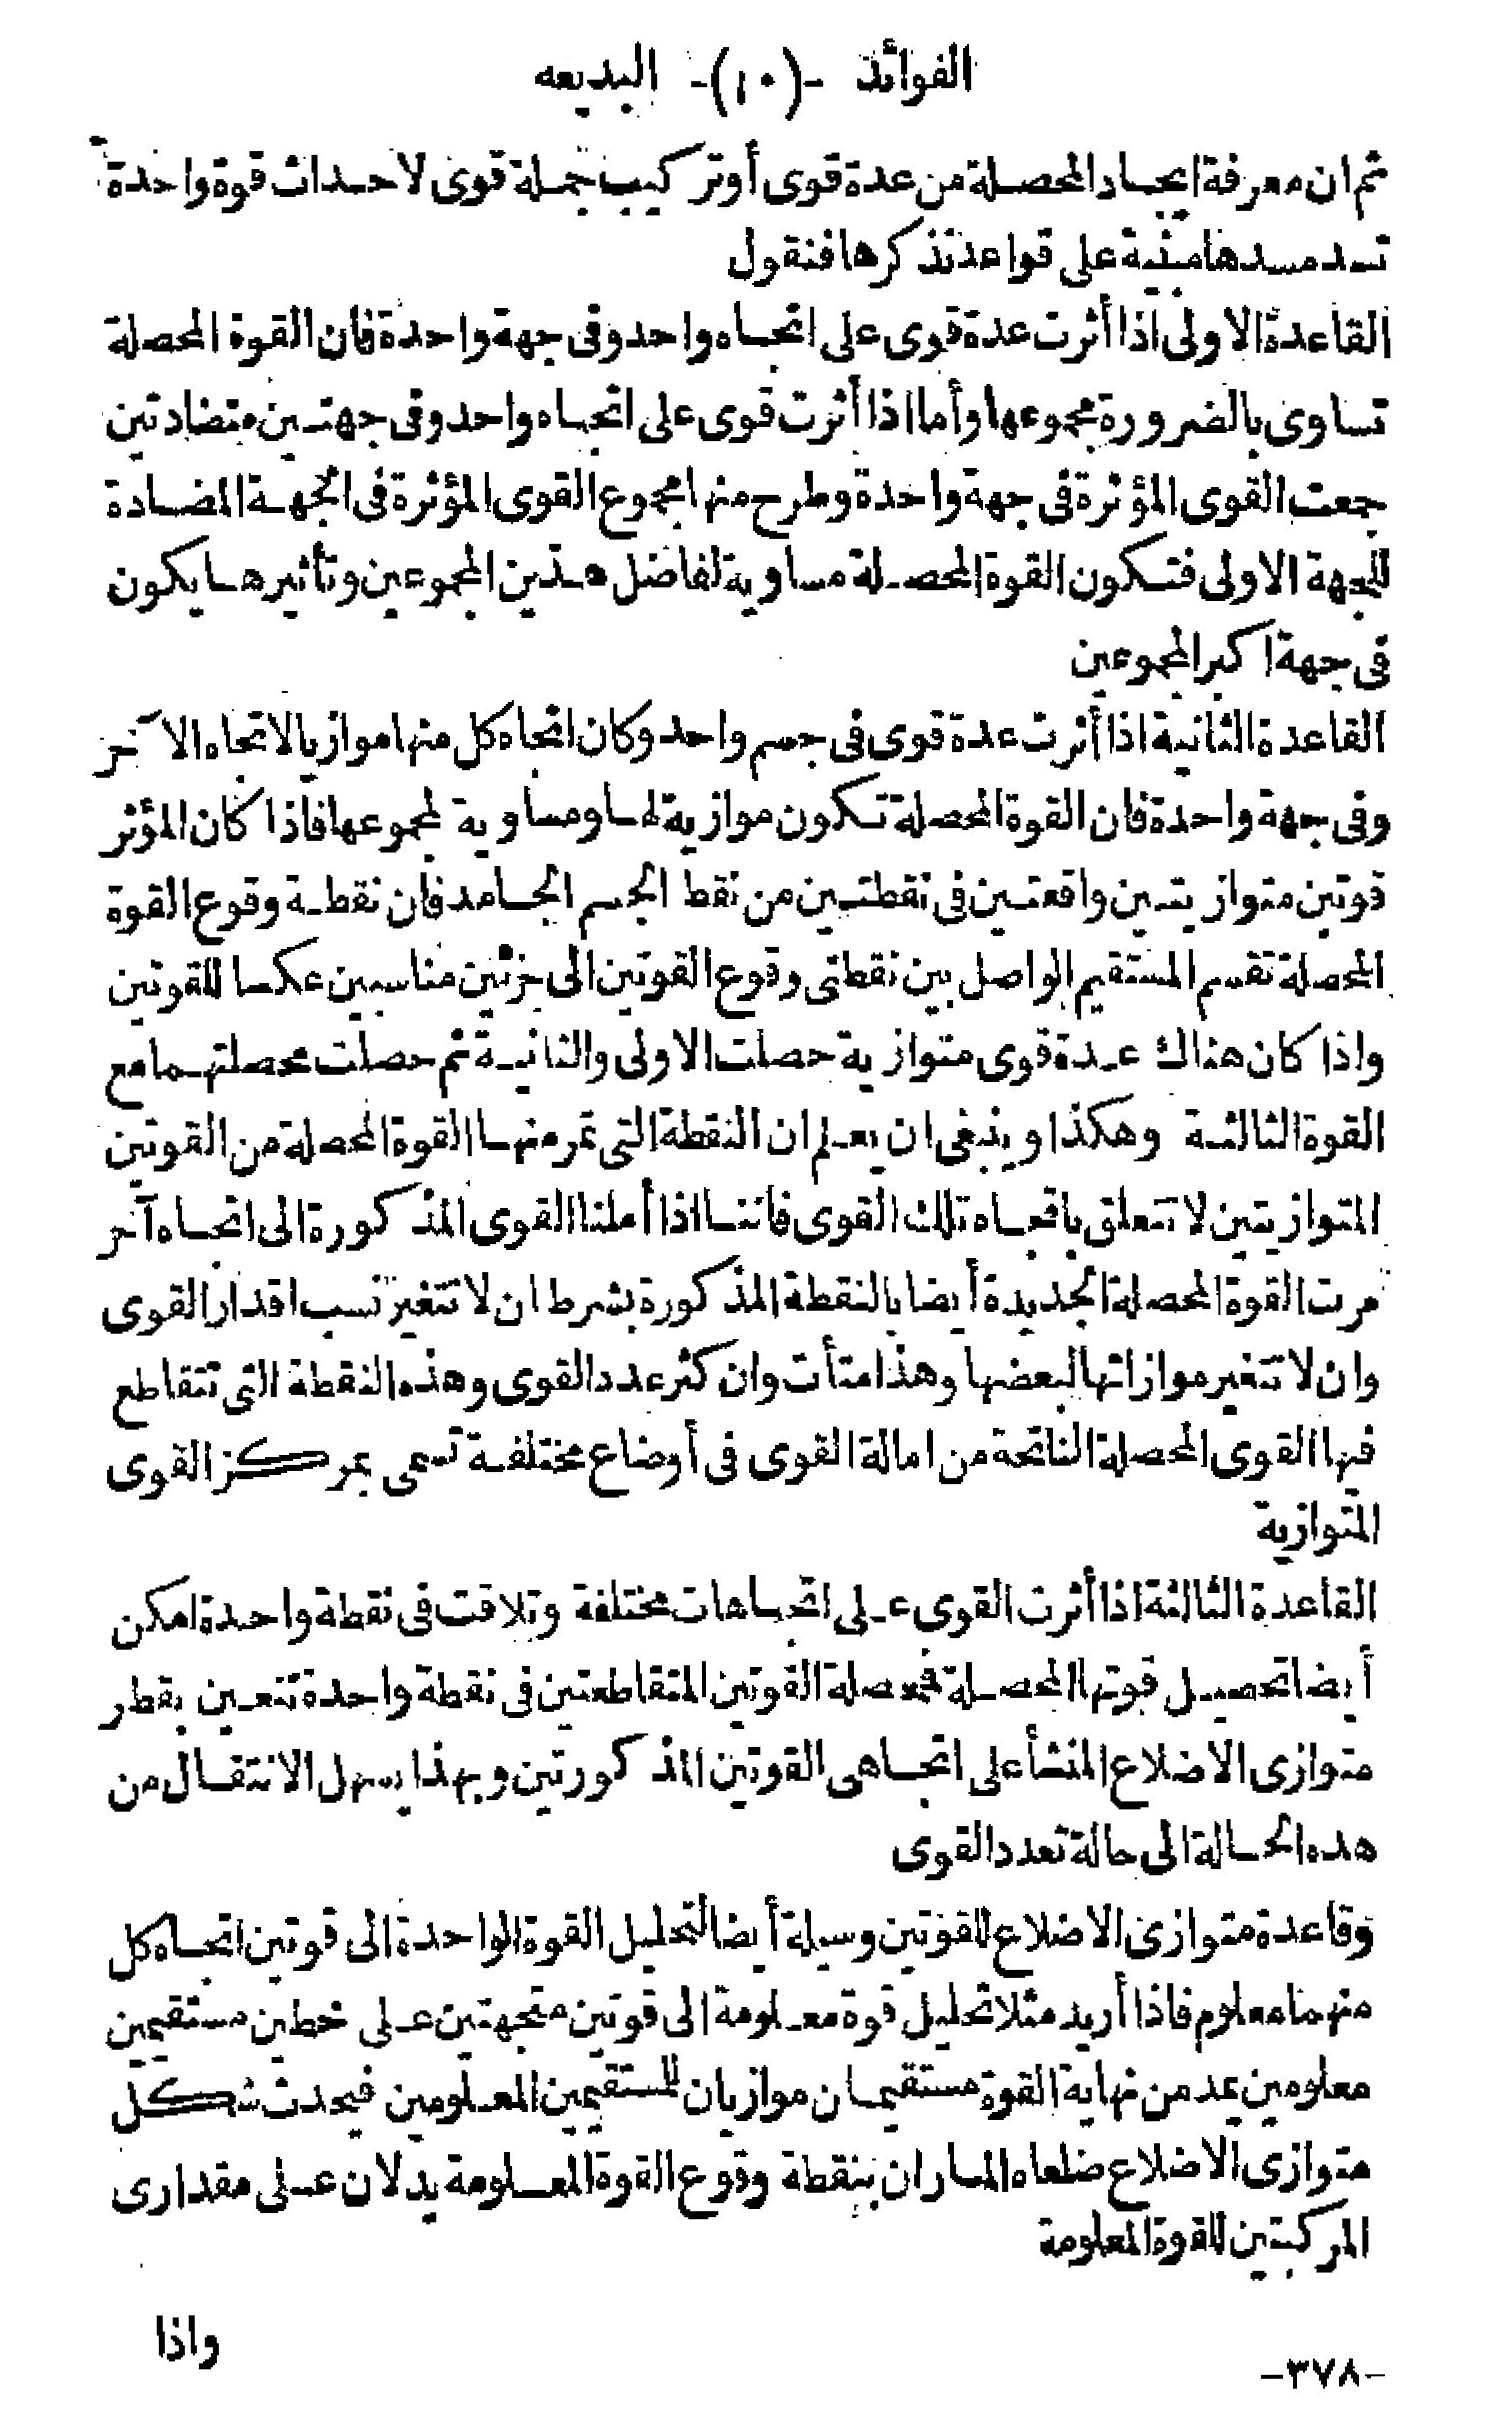 الفوائد -(١٠)- البديعه
ثم ان معرفة ايجاد المحصلة من عدة قوى أو تركيب جملة قوى لاحداث قوة واحدة
تسد مسدها مبنية على قواعد نذكرها فنقول
القاعدة الاولى اذا أثرت عدة قوى على اتجاه واحد وفى جهة واحدة فان القوة المحصلة
تساوى بالضرورة مجموعها وأما اذا أثرت قوى على اتجاه واحد وفى جهتين متضادتين
جمعت القوى المؤثرة فى جهة واحدة وطرح منها مجموع القوى المؤثرة فى الجهة المضادة
للجهة الاولى فتكون القوة المحصلة مساوية لفاضل هذين المجموعين وتأثيرها يكون
فى جهة اكبر المجموعين
القاعدة الثانية اذا أثرت عدة قوى فى جسم واحد وكان اتجاه كل منها موازيا لاتجاه الآخر
وفى جهة واحدة فان القوة المحصلة تكون موازية لها ومساوية لمجموعها فاذا كان المؤثر
قوتين متوازيتين واقعتين فى نقطتين من نقط الجسم الجامد فان نقطة وقوع القوة
المحصلة تقسم المستقيم الواصل بين نقطتى وقوع القوتين الى جزئين مناسبين عكسا للقوتين
واذا كان هناك عدة قوى متوازية حصلت الاولى والثانية ثم حصلت محصلتهما مع
القوة الثالثة وهكذا وينبغى ان يعلم ان النقطة التى تمر منها القوة المحصلة من القوتين
المتوازيتين لا تتعلق باتجاه تلك القوى فاننا اذا أملنا القوى المذكورة الى اتجاه آخر
مرت القوة المحصلة الجديدة أيضا بالنقطة المذكورة بشرط ان لا تتغير نسب اقدار القوى
وان لا تتغير موازاتها لبعضها وهذا متأت وان كثر عدد القوى وهذه النقطة التى تتقاطع
فيها القوى المحصلة الناتجة من امالة القوى فى أوضاع مختلفة تسمى بمركز القوى
المتوازية
القاعدة الثالثة اذا أثرت القوى على اتجاهات مختلفة وتلاقت فى نقطة واحدة امكن
أيضا تحصيل قوتها المحصلة فمحصلة القوتين المتقاطعتين فى نقطة واحدة تتعين بقطر
متوازى الاضلاع المنشأ على اتجاهى القوتين المذكورتين وبهذا يسهل الانتقال من
هذه الحالة الى حالة تعدد القوى
وقاعدة متوازى الاضلاع للقوتين وسيلة أيضا لتحليل القوة الواحدة الى قوتين اتجاه كل
منهما معلوم فاذا أريد مثلا تحليل قوة معلومة الى قوتين متجهتين على خطين مستقيمين
معلومين يمد من نهاية القوة مستقيمان موازيان للمستقيمين المعلومين فيحدث شكل
متوازى الاضلاع ضلعاه الماران بنقطة وقوع القوة المعلومة يدلان على مقدارى
المركبتين للقوة المعلومة
واذا
-٣٧٨-